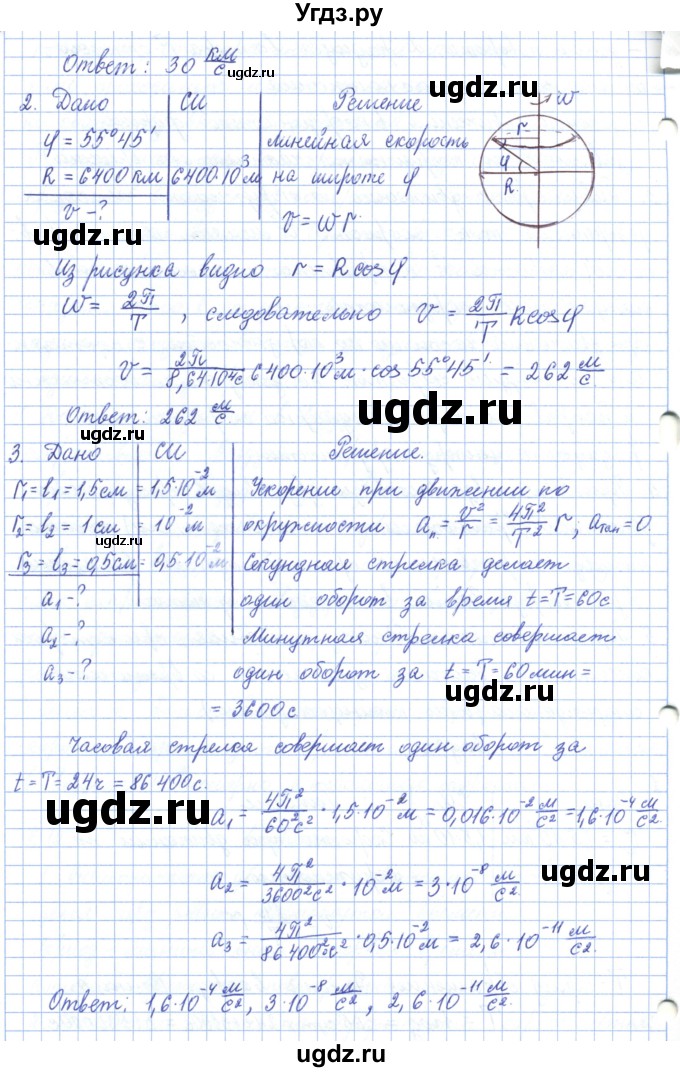 Угдз.ру
Ответ: 30 км/с
ugdz.ru
2. Дано СИ Решение ω
φ = 55°45′ Линейная скорость r
R = 6400 км 6400·10³м на широте φ φ
v - ? v = ωr R
ugdz.ru
Из рисунка видно r = R cosφ
ω = 2π/T , следовательно v = 2π/T R cosφ
v = 2π/8,64·10⁴с 6400·10³м · cos 55°45′ = 262 м/с.
Ответ: 262 м/с
ugdz.ru
ugdz.ru
3. Дано СИ Решение.
r₁ = l₁ = 1,5см = 1,5·10⁻² м Ускорение при движении по
r₂ = l₂ = 1 см = 10⁻² м окружности aₙ = v²/r = 4π²/T² r; aтан = 0.
r₃ = l₃ = 0,5см = 0,5·10⁻² м Секундная стрелка делает
a₁ - ? один оборот за время t = T = 60с
a₂ - ? Минутная стрелка совершает
a₃ - ? один оборот за t = T = 60мин =
= 3600 с
ugdz.ru
Часовая стрелка совершает один оборот за
t = T = 24ч = 86400с.
ugdz.ru
a₁ = 4π²/60²с² · 1,5·10⁻² м = 0,016·10⁻² м/с² = 1,6·10⁻⁴ м/с²
a₂ = 4π²/3600²с² · 10⁻² м = 3·10⁻⁸ м/с²
ugdz.ru
a₃ = 4π²/86400²с² · 0,5·10⁻² м = 2,6·10⁻¹¹ м/с².
ugdz.ru
Ответ: 1,6·10⁻⁴ м/с², 3·10⁻⁸ м/с², 2,6·10⁻¹¹ м/с².
ugdz.ru
ugdz.ru